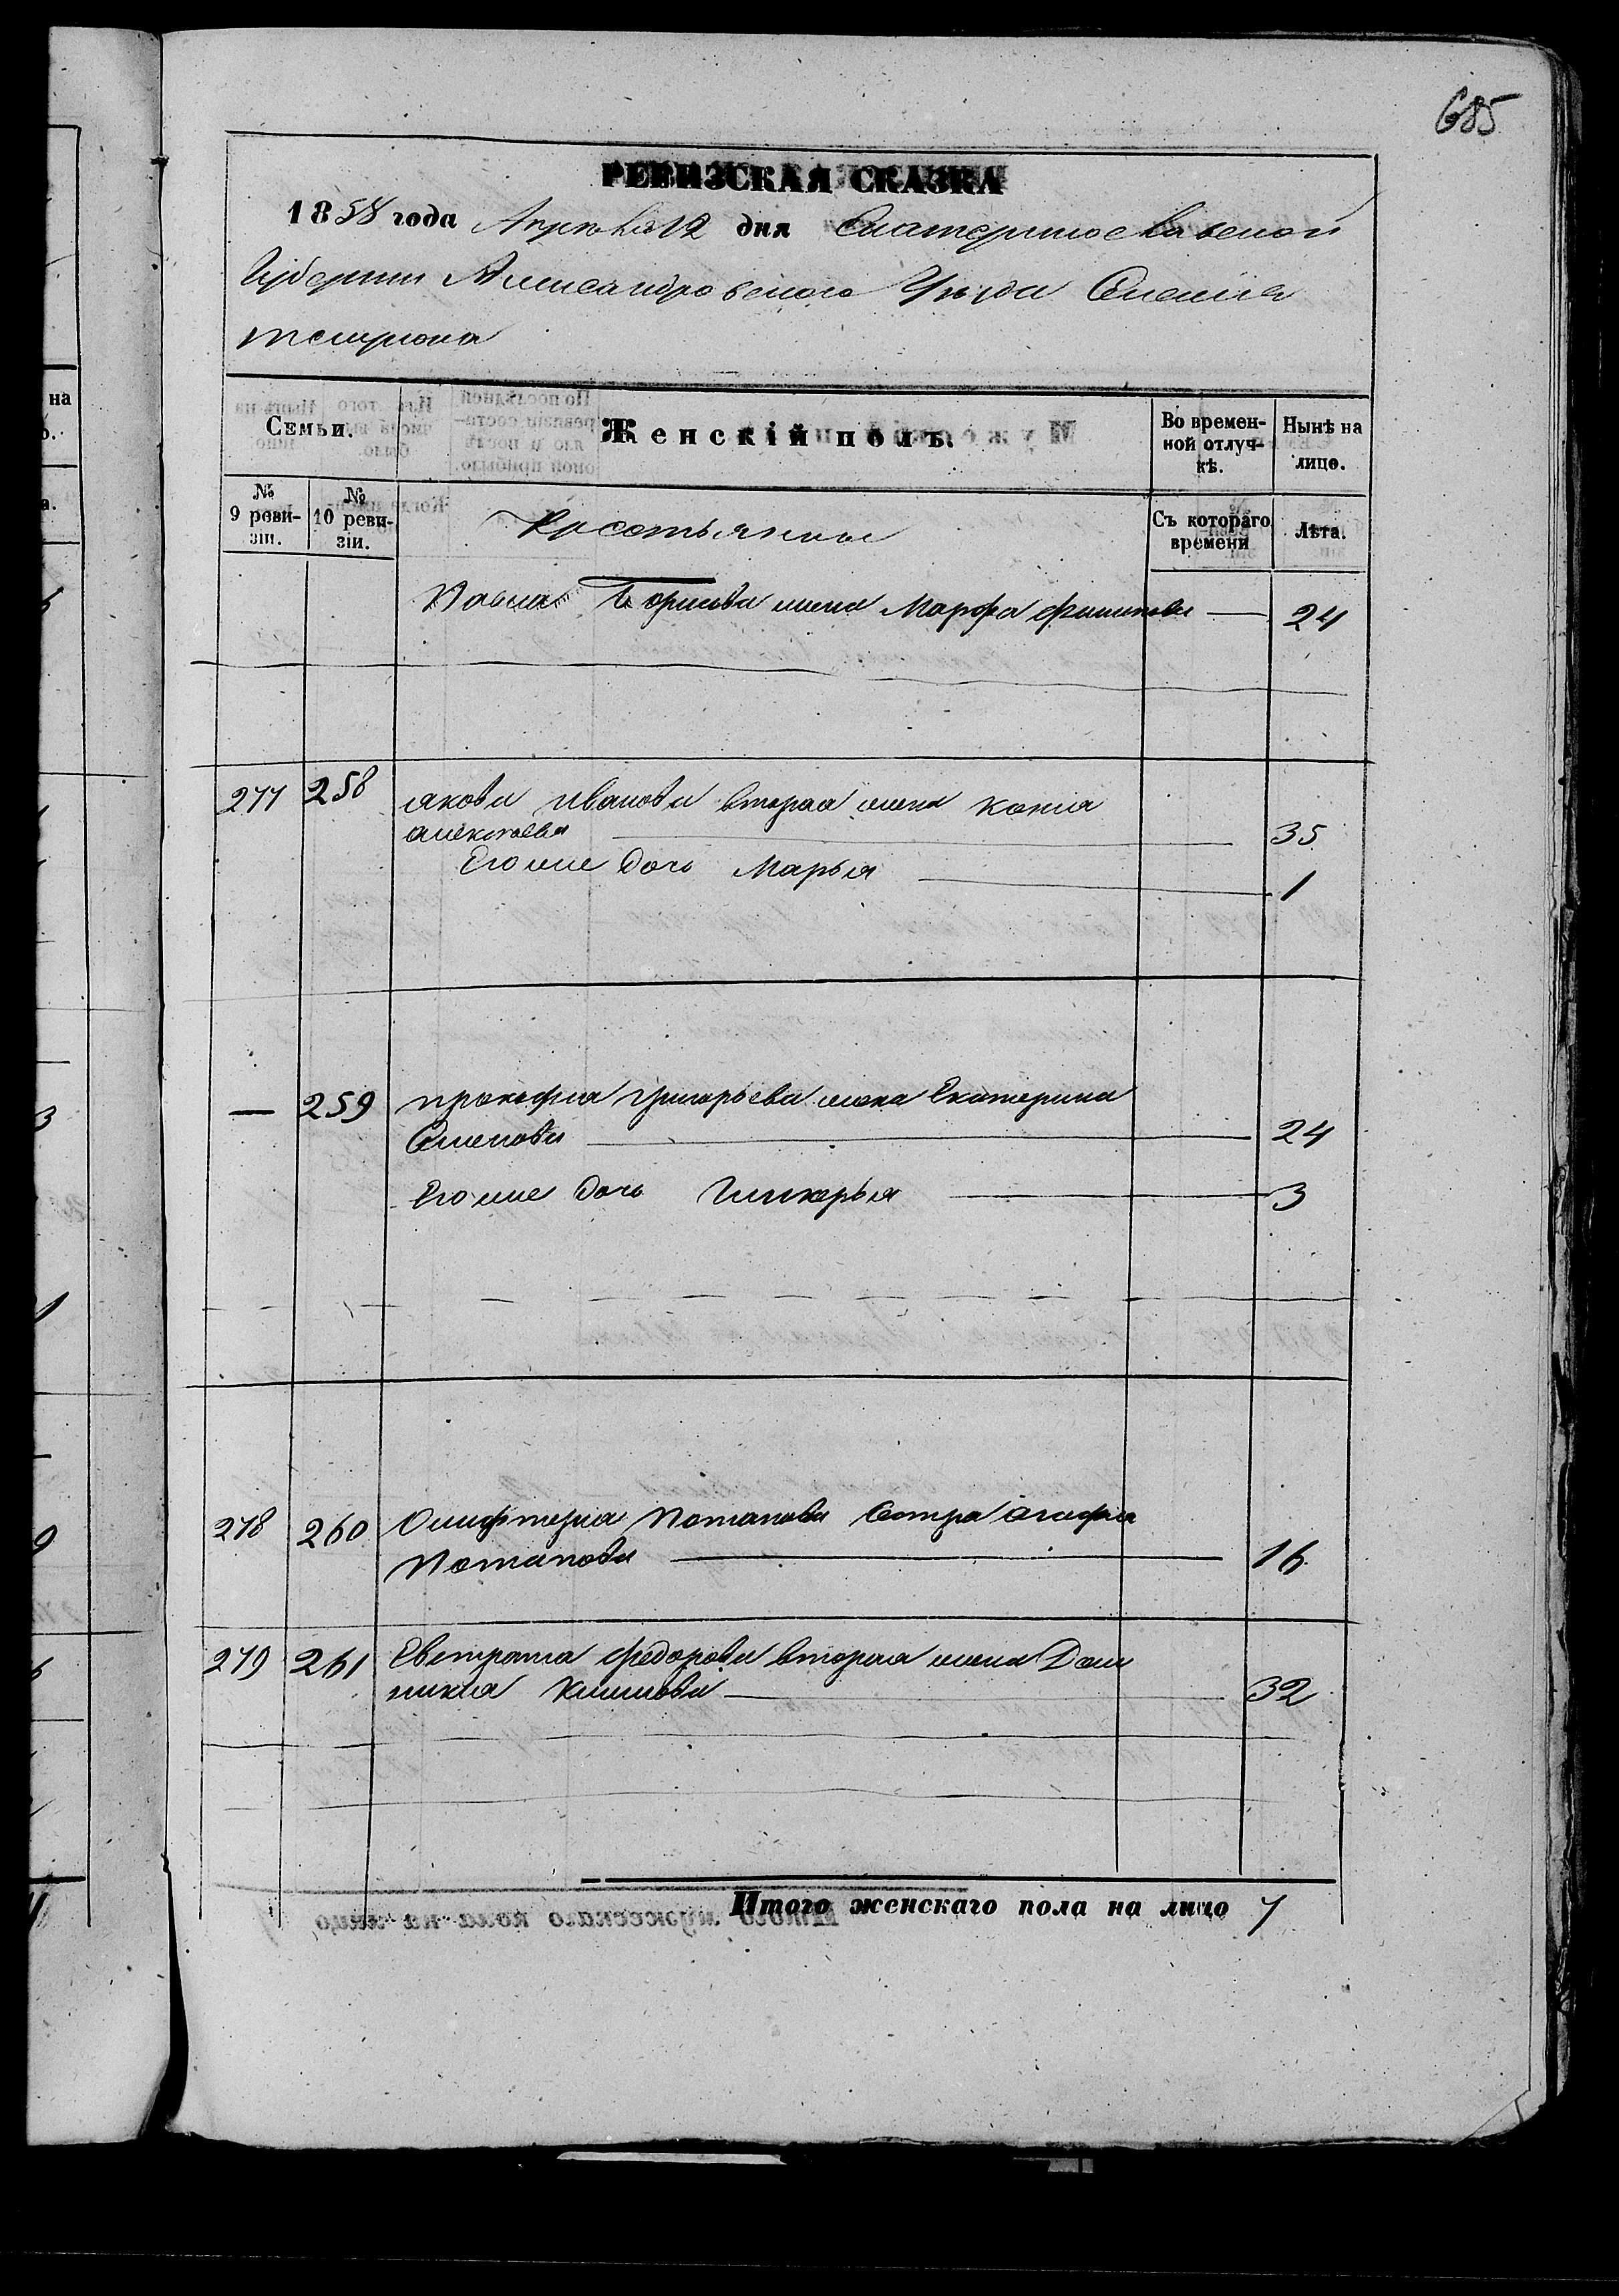 685
РЕВИЗСКАЯ СКАЗКА
1858 года Апреля 12 дня Екатеринославской
Губернии Александровского Уезда Селения
темрюка
Семьи. Женскій полъ. Во времен-ной отлуч-кѣ. Нынѣ на лицо.
№ 9 реви-зіи. № 10 реви-зіи. Крестьяне Съ котораго времени Лѣта.
Павла Борисова жена Марфа филипова 24
277 258 якова иванова вторая жена ксения
алексеева 35
Его же дочь Марья 1
— 259 прокофия григорьева жена Екатерина
Семенова 24
Его же дочь Гликерья 3
278 260 Олифтерия Потапова Сестра агафия
Потапова 16
279 261 Евстратия федорова вторая жена Дом
никия Климова 32
Итого женскаго пола на лицо 7